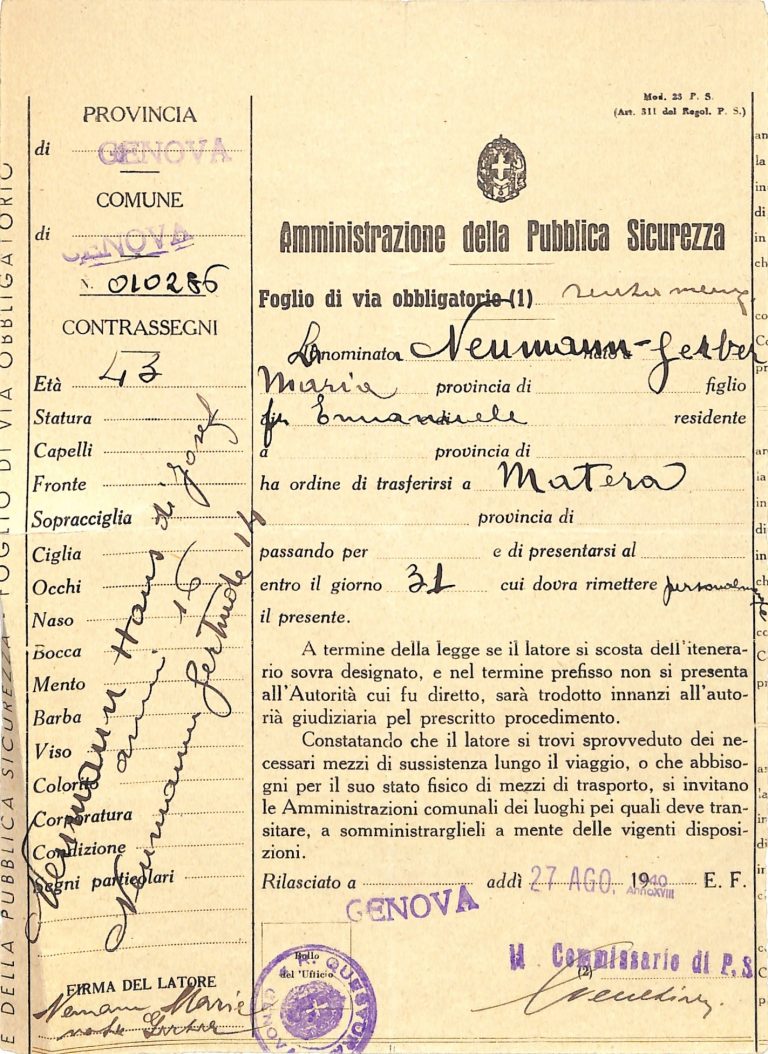 Mod. 23 P. S.
(Art. 311 del Regol. P. S.)
PROVINCIA
di GENOVA
COMUNE
di GENOVA
N. 010286
CONTRASSEGNI
Età 43
Statura
Capelli
Fronte
Sopracciglia
Ciglia
Occhi
Naso
Bocca
Mento
Barba
Viso
Colorito
Corporatura
Condizione
Segni particolari
Neumann Hans di Josef
anni 16
Neumann Gertrude 14
FIRMA DEL LATORE
Neumann Marie
Amministrazione della Pubblica Sicurezza
Foglio di via obbligatorio (1) senza mezzi
La nominata Neumann-Gerber
Maria provincia di figlio
fu Emanuele residente
a provincia di
ha ordine di trasferirsi a Matera
provincia di
passando per e di presentarsi al
entro il giorno 31 cui dovra rimettere personalmente
il presente.
A termine della legge se il latore si scosta dell'itenera-
rio sovra designato, e nel termine prefisso non si presenta
all'Autorità cui fu diretto, sarà trodotto innanzi all'auto-
rià giudiziaria pel prescritto procedimento.
Constatando che il latore si trovi sprovveduto dei ne-
cessari mezzi di sussistenza lungo il viaggio, o che abbiso-
gni per il suo stato fisico di mezzi di trasporto, si invitano
le Amministrazioni comunali dei luoghi pei quali deve tran-
sitare, a somministrarglieli a mente delle vigenti disposi-
zioni.
Rilasciato a GENOVA addì 27 AGO. 1940 Anno XVIII E. F.
Bollo
del 'Ufficio
R. QUESTURA
Il Commissario di P.S.
(2)
E DELLA PUBBLICA SICUREZZA - FOGLIO DI VIA OBBLIGATORIO